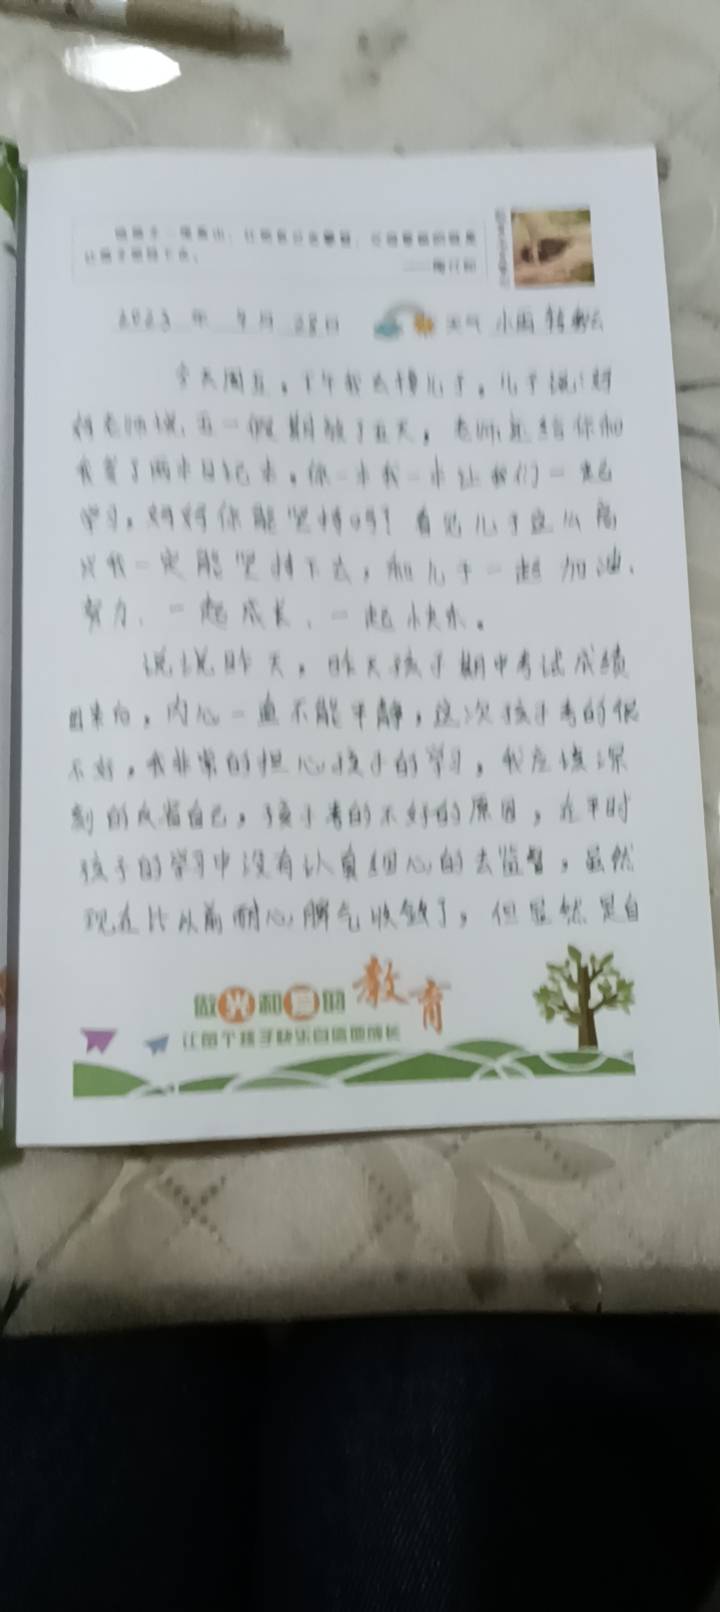 2023年 4月 28日 天气 小雨转多云
今天周五，下午我去接儿子，儿子说：妈
妈老师说，五一假期放了五天，老师还给你和
我发了两本日记本，你一本我一本让我们一起
学习，妈妈你能坚持吗？看见儿子这么高
兴我一定能坚持下去，和儿子一起加油、
努力、一起成长、一起快乐。
说说昨天，昨天孩子期中考试成绩
回来后，内心一直不能平静，这次孩子考的很
不好，我非常的担心孩子的学习，我应该深
刻的反省自己，孩子考的不好的原因，在平时
孩子的学习中没有认真细心的去监督，虽然
现在比从前耐心，脾气收敛了，但显然是自
做光和盐的教育
让每个孩子快乐自信地成长